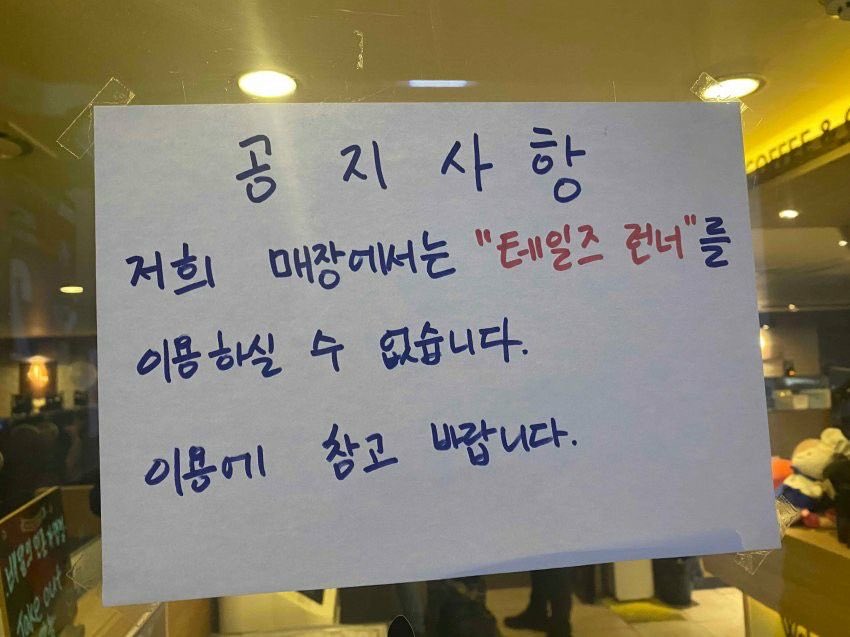 공지사항
저희 매장에서는 "테일즈 런너"를
이용하실 수 없습니다.
이용에 참고 바랍니다.
COFFEE &
Take out